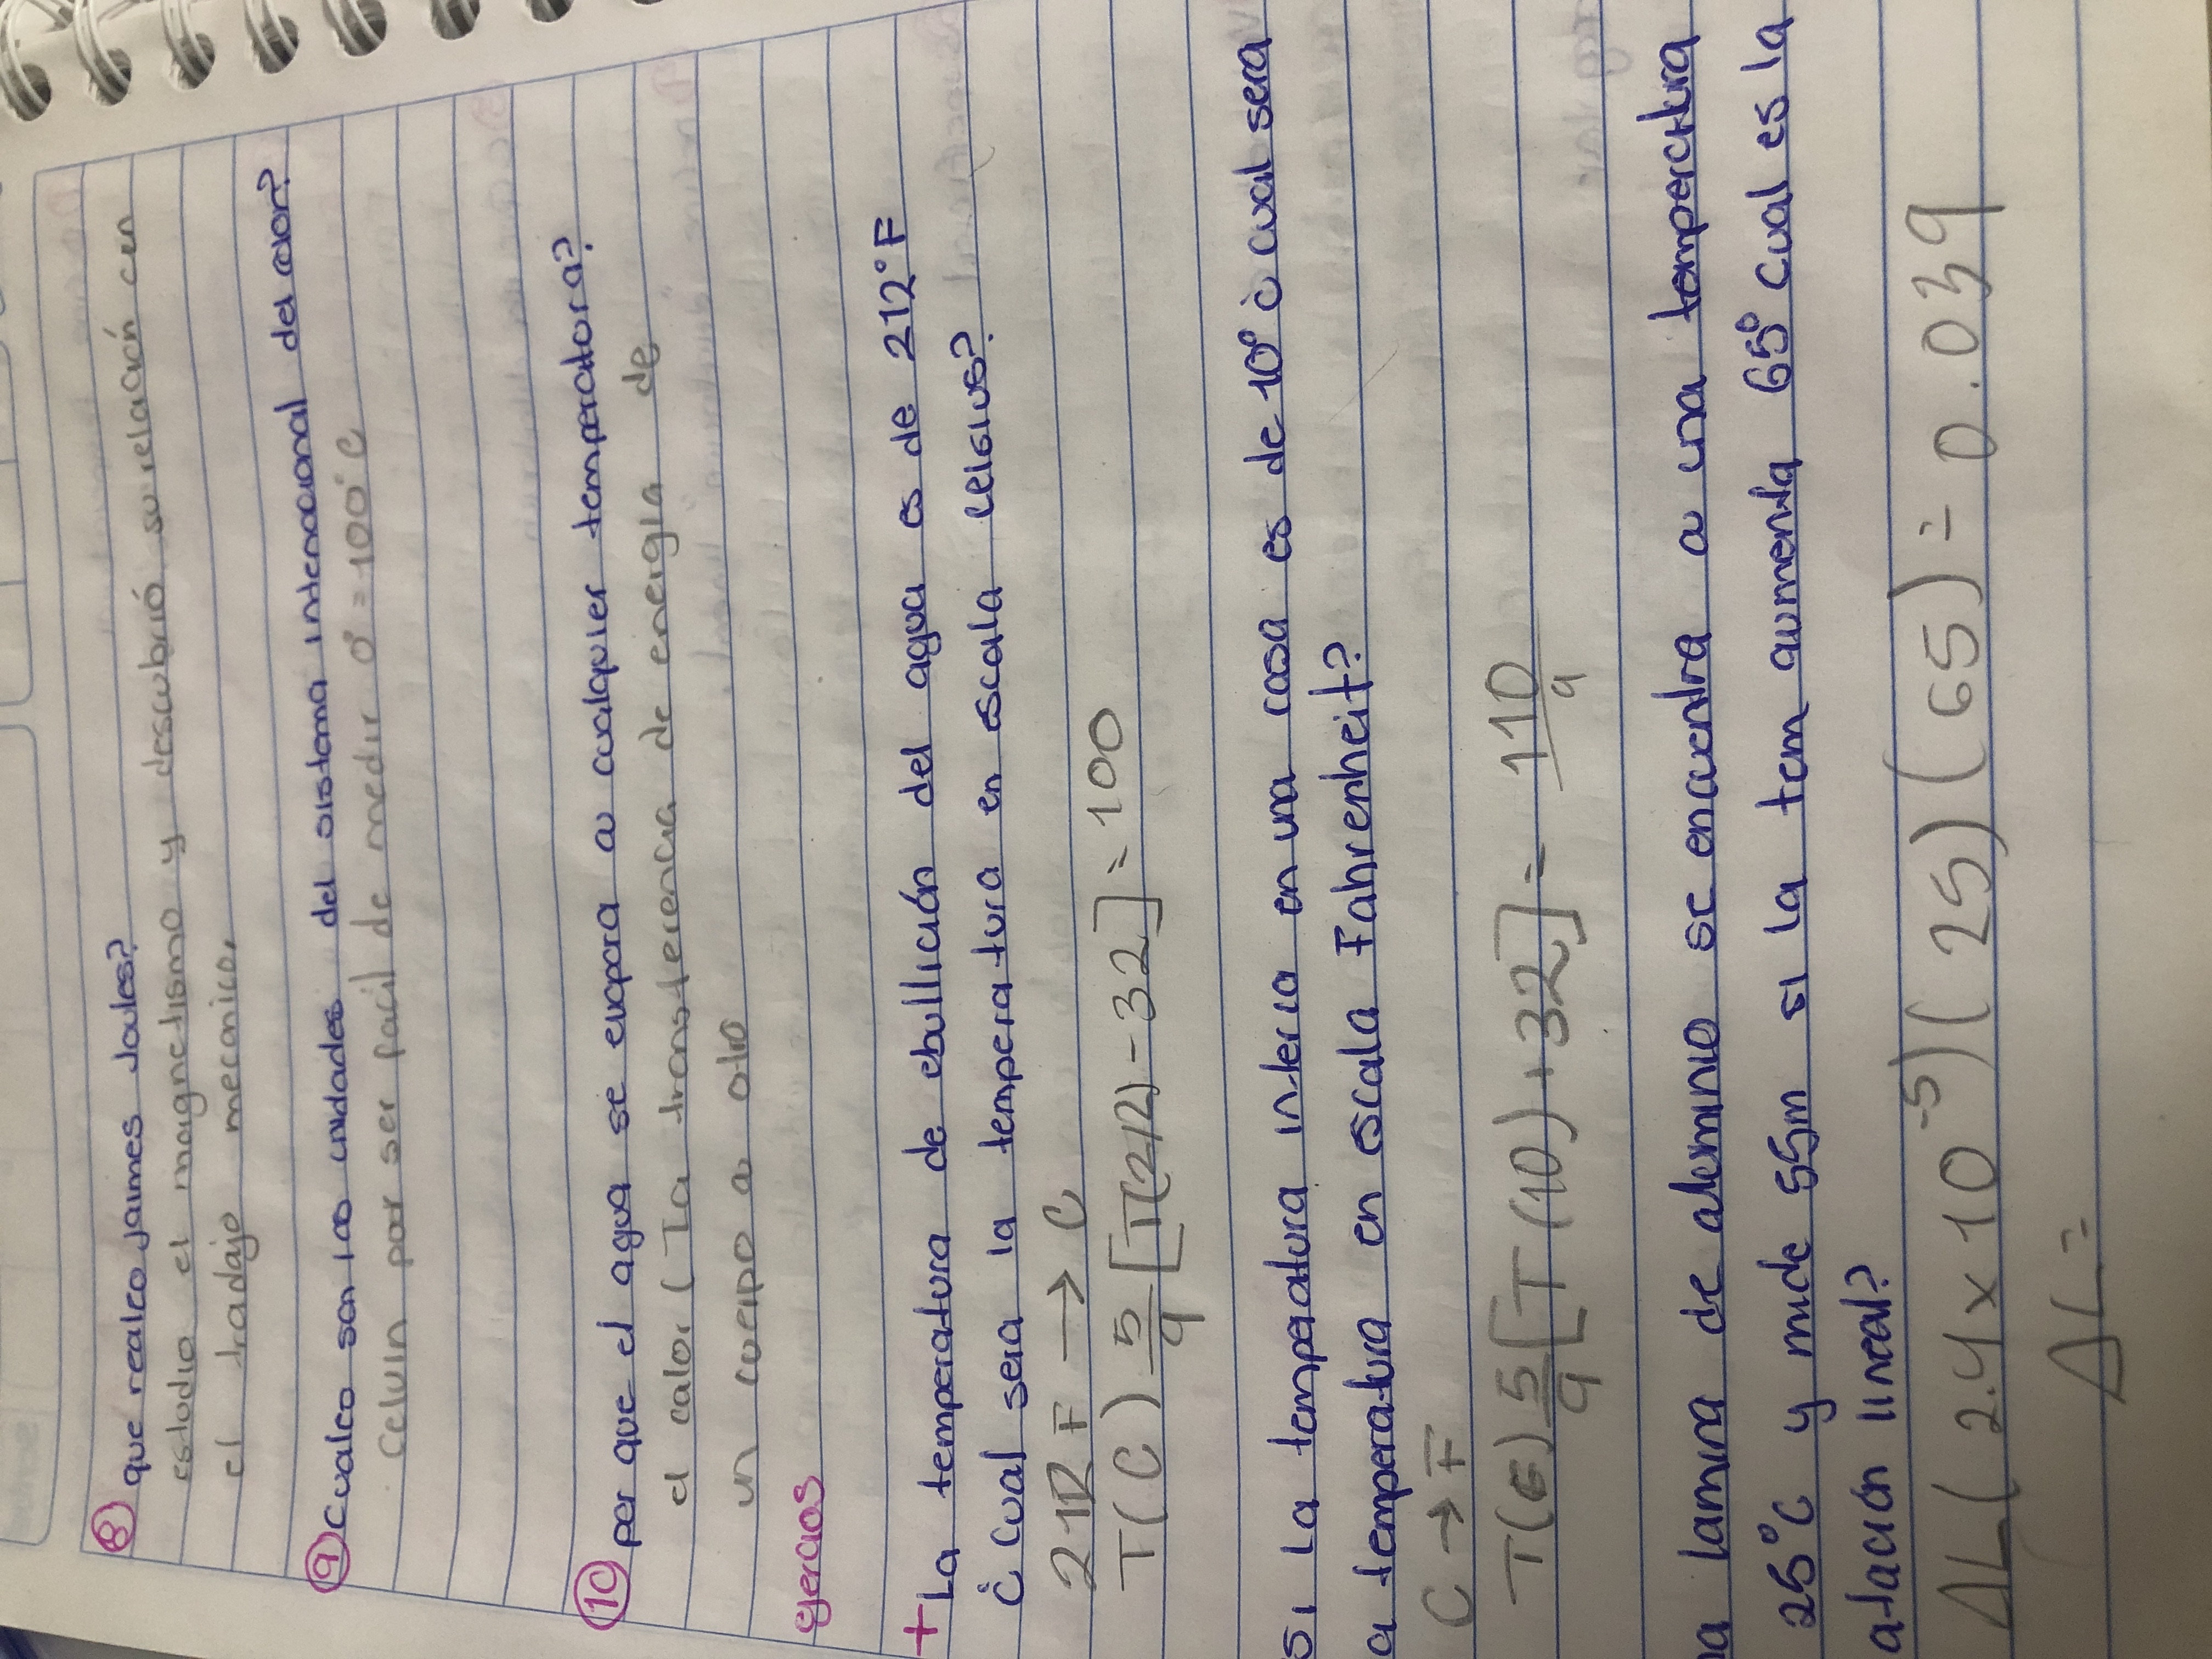 ⑧ que realco Jaimes Joules?
estodio el magnetismo y descubrió su relación cen
el tradajo mecanico,
⑨ cuales son las unidades del sistema internacional del calor?
celuin por ser facil de medir 0° = 100°C
⑩ por que el agua se evapora a cualquier temperatura?
el calor ( La transferencia de energia de
un cuerpo a otro
ejercios
+ La temperatura de ebullición del agua es de 212°F
¿ cual sera la temperatura en escala celsius?
212 F → C
T(C) 5/9 [T(212) - 32] = 100
Si La temperatura interia en una casa es de 10° ¿ cual sera
a temperatura en escala Fahrenheit?
C → F
T(C) 5/9 [T(10) + 32] = 110/9
na lamina de aluminio se encuentra a una temperctura
25°C y mide 55m si la tem aumenta 65° cual es la
atación lineal?
ΔL ( 2.4 x 10⁻⁵ ) ( 25 ) ( 65 ) = 0.039
ΔL =